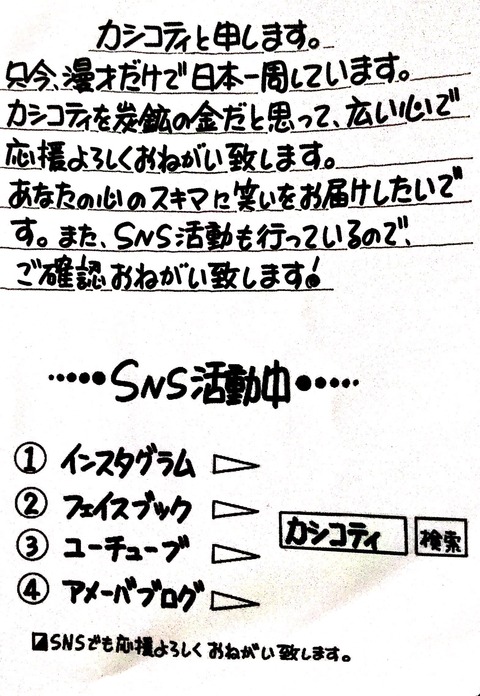 カシコティと申します。
只今、漫才だけで日本一周しています。
カシコティを炭鉱の金だと思って、広い心で
応援よろしくおねがい致します。
あなたの心のスキマに笑いをお届けしたいで
す。また、SNS活動も行っているので、
ご確認おねがい致します!
・・・・・SNS活動中・・・・・
① インスタグラム ▷
② フェイスブック ▷
③ ユーチューブ ▷
④ アメーバブログ ▷
カシコティ 検索
SNSでも応援よろしくおねがい致します。